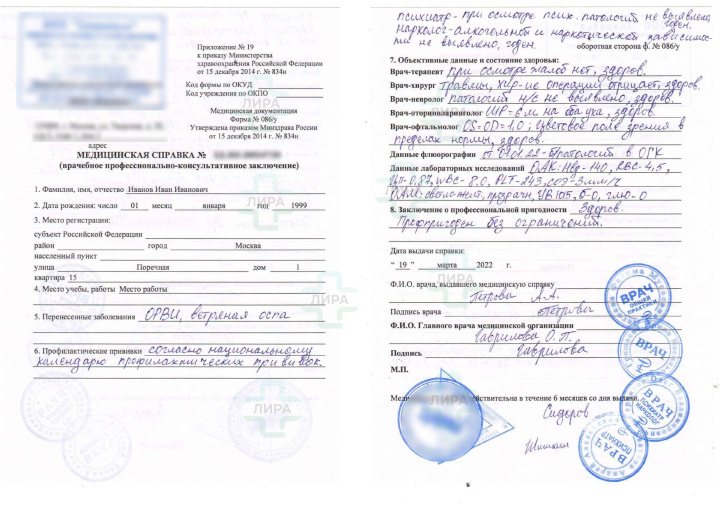 Приложение № 19
к приказу Министерства
здравоохранения Российской Федерации
от 15 декабря 2014 г. № 834н
Код формы по ОКУД
Код учреждения по ОКПО
Медицинская документация
Форма № 086/у
Утверждена приказом Минздрава России
от 15 декабря 2014 г. № 834н
адрес
МЕДИЦИНСКАЯ СПРАВКА №
(врачебное профессионально-консультативное заключение)
1. Фамилия, имя, отчество Иванов Иван Иванович
2. Дата рождения: число 01 месяц января год 1999
3. Место регистрации:
субъект Российской Федерации
район город Москва
населенный пункт
улица Поречная дом 1
квартира 15
4. Место учебы, работы Место работы
5. Перенесенные заболевания ОРВИ, ветряная оспа
6. Профилактические прививки согласно национальному
календарю профилактических прививок.
ЛИРА
ЛИРА
ЛИРА
ЛИРА
психиатр - при осмотре псих. патологий не выявлено, годен.
нарколог - алкогольной и наркотической зависимос-
ти не выявлено, годен.
оборотная сторона ф. № 086/у
7. Объективные данные и состояние здоровья:
Врач-терапевт при осмотре жалоб нет, здоров.
Врач-хирург травмы, хир-ие операции отрицает, здоров.
Врач-невролог патологий н/с не выявлено, здоров.
Врач-оториноларинголог ШР=6м на оба уха, здоров.
Врач-офтальмолог OS=OD=1,0; цветовое поле зрения в
пределах нормы, здоров.
Данные флюорографии патологий в ОГК
Данные лабораторных исследований ОАК: Hg-140, RBC-4,5,
WBC-8.0, PLT-243, соэ 3мм/ч
ОАМ: прозрачн, б-0, глю-0
8. Заключение о профессиональной пригодности Здоров.
Профпригоден без ограничений.
Дата выдачи справки:
“ 19 ” марта 2022 г.
Ф.И.О. врача, выдавшего медицинскую справку
Петрова А.А.
Подпись врача Петрова
Ф.И.О. Главного врача медицинской организации
Гаврилова О.П.
Подпись Гаврилова
М.П.
действительна в течение 6 месяцев со дня выдачи.
Сидоров
Шишкин
ВРАЧ
ОБЩЕЙ
ПРАКТИКИ
ВРАЧ
ВРАЧ
ПСИХИАТР
НАРКОЛОГ
ВРАЧ
ПСИХИАТР